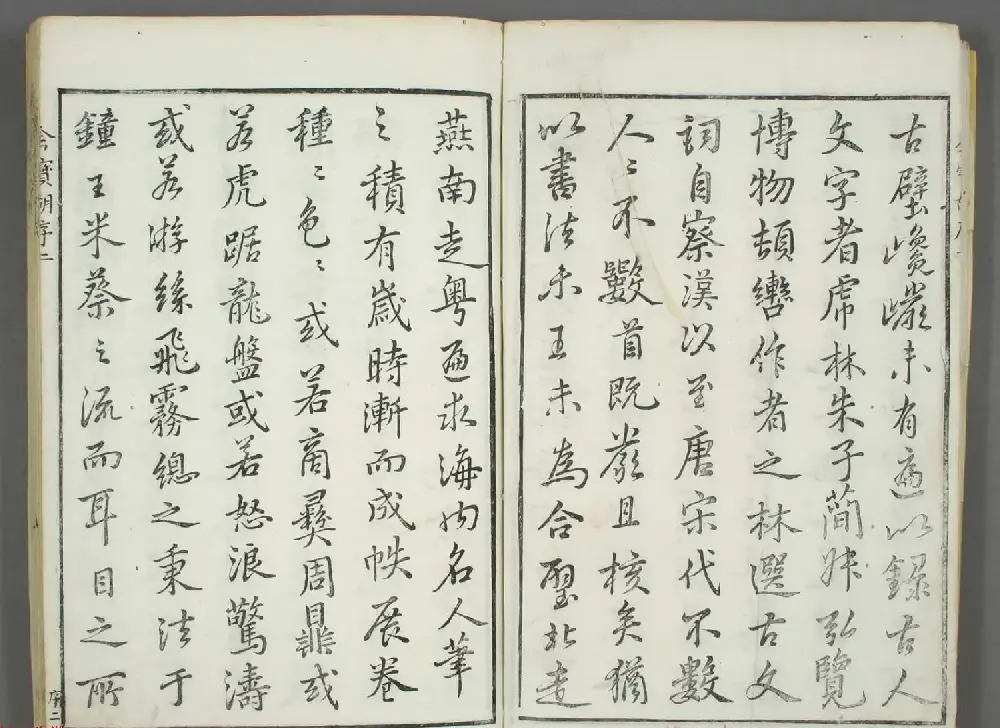 古壁巉巗未有遍以録古人
文字者虎林朱子簡妹弘覽
博物頡轡作者之林選古文
詞自秦漢以至唐宋代不數
人〻不數首既嚴且核矣猶
以書法未工未為合璧北走
燕南走粤遍求海内名人筆
之積有歲時漸而成帙展卷
種〻色〻或若商彝周鼎或
若虎踞龍盤或若怒浪驚濤
或若游絲飛霧總之秉法于
鍾王米蔡之流而耳目之所
序二